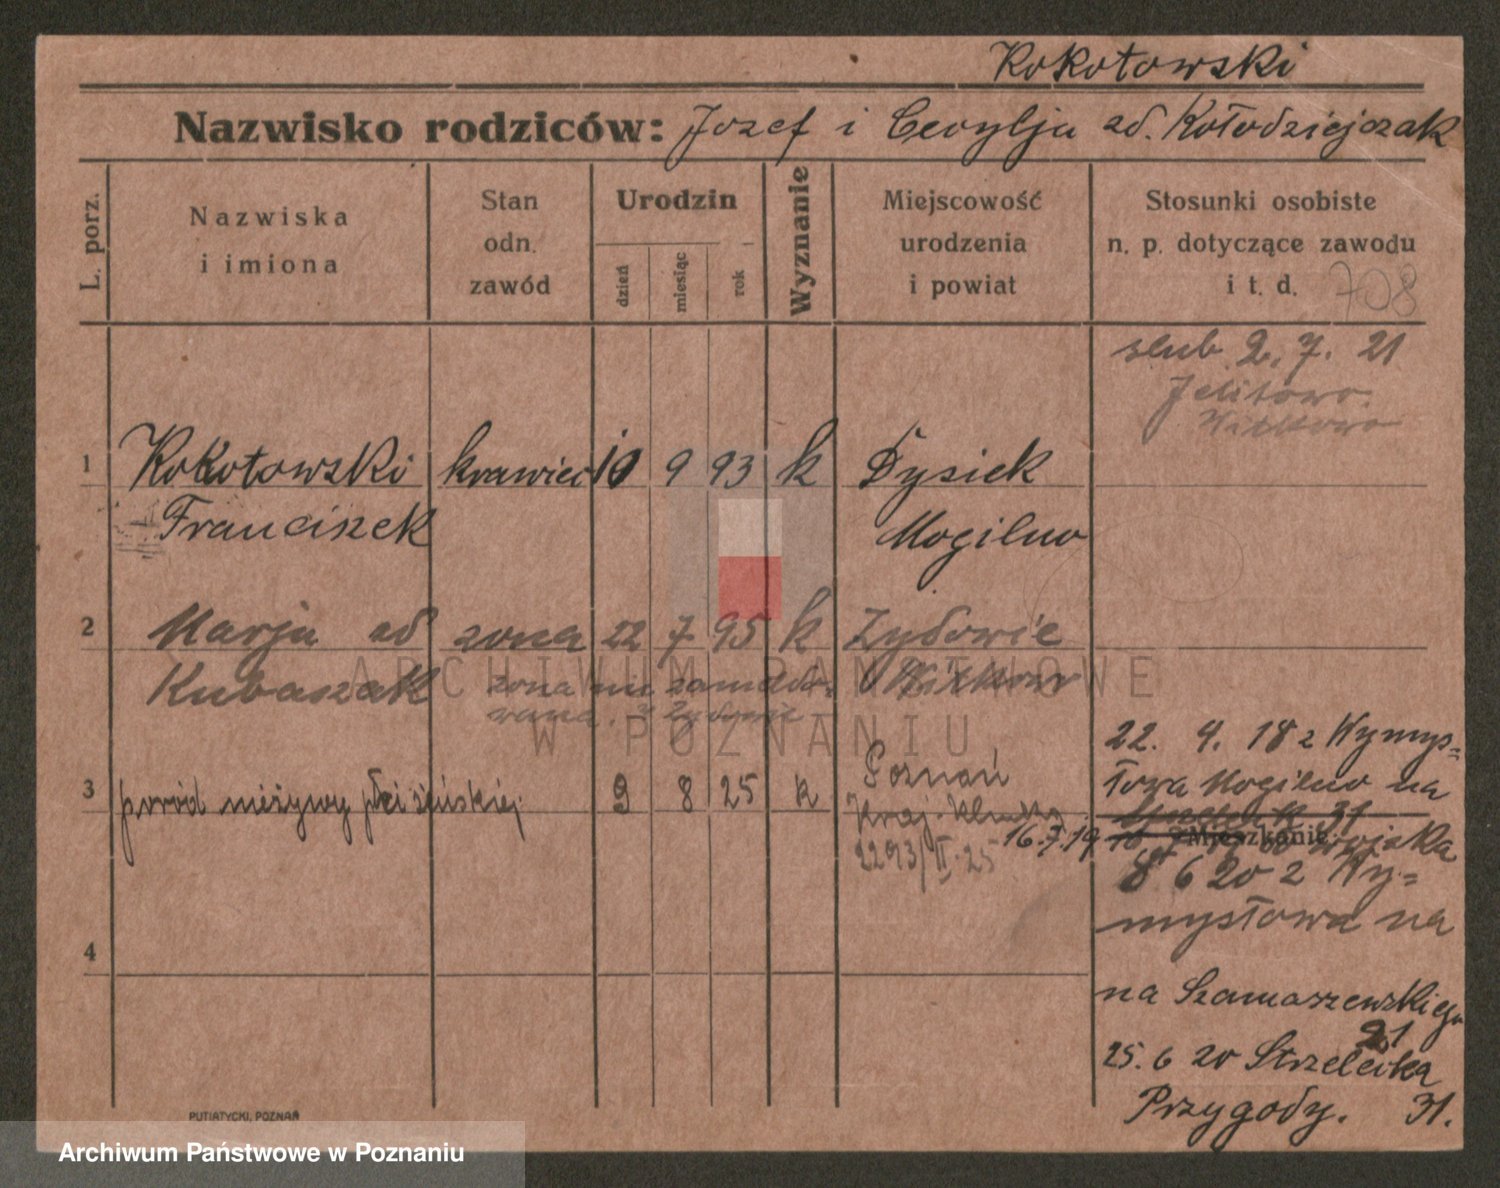 Kokotowski
Nazwisko rodziców: Jozef i Cecylja zd. Kołodziejczak
L. porz.
Nazwiska
i imiona
Stan
odn.
zawód
Urodzin
dzień
miesiąc
rok
Wyznanie
Miejscowość
urodzenia
i powiat
Stosunki osobiste
n. p. dotyczące zawodu
i t. d.
708
slub 2. 7. 21
Jelitowo
Witkowo
1 Kokotowski krawiec 10 9 93 k Dysiek
Franciszek Mogilno
2 Marja zd zona 22 7 95 k Zydowie
Kubaszak zona nie zameldo-
wana. Witkowo
3 poród nieżywy płci żeńskiej 9 8 25 k Poznań
2293/II.25
22. 4. 18 z Wymys=
łowa Mogilno na
31
16.7.19 Mieszkanie: wojska
8 6 20 z Wy=
mysłowa na
na Szamarzewskiego
21
25. 6 20 Strzelecka
Przygody. 31.
4
PUTIATYCKI, POZNAŃ
ARCHIWUM PAŃSTWOWE
W POZNANIU
Archiwum Państwowe w Poznaniu